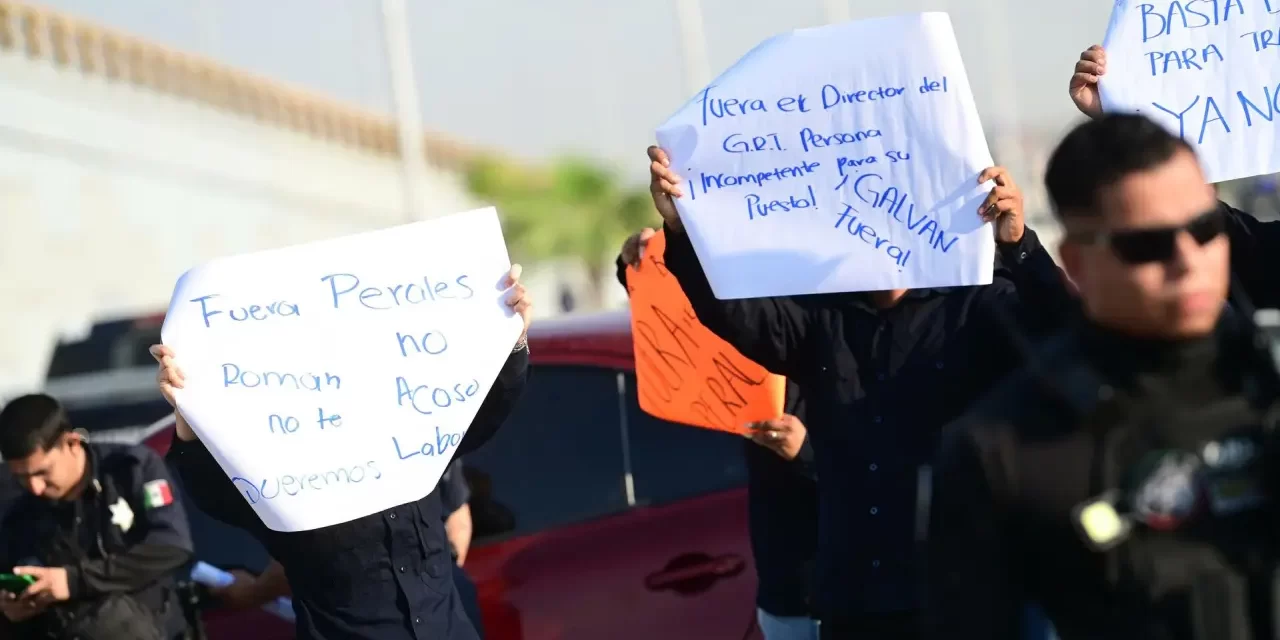 Fuera Perales
no
Roman Acoso
no te Labo
Queremos
Fuera el Director del
G.R.I. Persona
¡Incompetente para su
Puesto! ¡GALVAN
Fuera!
BASTA
PARA
¡YA NO